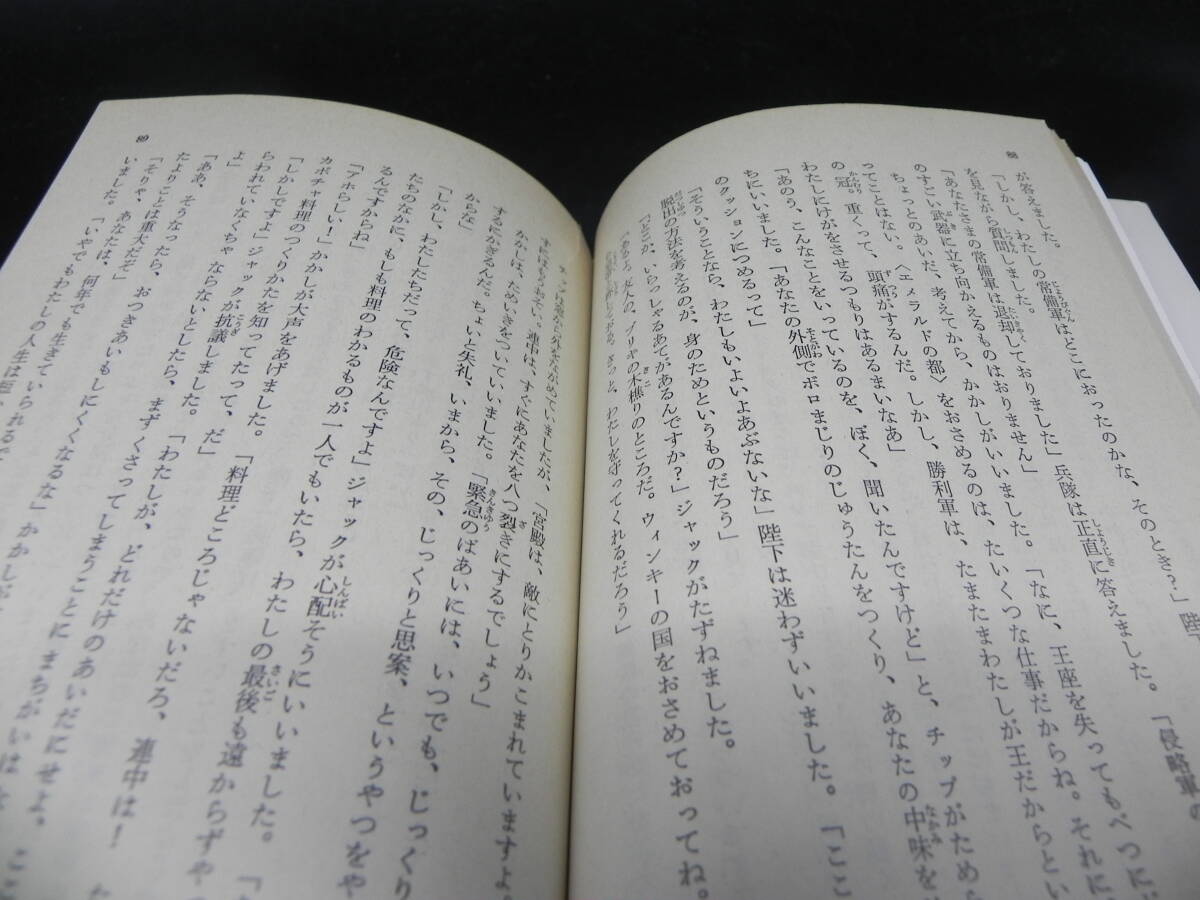 88
が答えました。
「しかし、わたしの常備軍はどこにおったのかな、そのとき?」陛
を見ながら質問しました。
「あなたさまの常備軍は退却しておりました」兵隊は正直に答えました。「侵略軍の
のすごい武器に立ち向かえるものはおりません」
ちょっとのあいだ、考えてから、かかしがいいました。「なに、王座を失ってもべつに
ってことはない。〈エメラルドの都〉をおさめるのは、たいくつな仕事だからね。それに
の冠、重くって、頭痛がするんだ。しかし、勝利軍は、たまたまわたしが王だからとい
わたしにけがをさせるつもりはあるまいなあ」
「あのう、こんなことをいっているのを、ぼく、聞いたんですけど」と、チップがためら
ちにいいました。「あなたの外側でボロまじりのじゅうたんをつくり、あなたの中味を
のクッションにつめるって」
「そういうことなら、わたしもいよいよあぶないな」陛下は迷わずいいました。「ここ
脱出の方法を考えるのが、身のためというものだろう」
「どこか、いらっしゃるあてがあるんですか?」ジャックがたずねました。
「ああ、友人の、ブリキの木樵りのところだ。ウィンキーの国をおさめておってね。
さっと、わたしを守ってくれるだろう」
89
外をながめていましたが、「宮殿は、敵にとりかこまれていますよ。
連中は、すぐにあなたを八つ裂きにするでしょう」
かかしは、ためいきをついていいました。「緊急のばあいには、いつでも、じっくり
するにかぎるんだ。ちょいと失礼、いまから、その、じっくりと思案、というやつをや
からだ」
「しかし、わたしたちだって、危険なんですよ」ジャックが心配そうにいいました。「
たちのなかに、もしも料理のわかるものが一人でもいたら、わたしの最後も遠からずや
るんですからね」
「アホらしい!」かかしが大声をあげました。「料理どころじゃないだろ、連中は! た
カボチャ料理のつくりかたを知ってたって、だ」
「しかしですよ」ジャックが抗議しました。「わたしが、どれだけのあいだにせよ、ここ
らわれていなくちゃ ならないとしたら、まずくさってしまうことにまちがいは
よ」
「ああ、そうなったら、おつきあいもしにくくなるな」かかしが
たよりことは重大だぞ」
「そりゃ、あなたは、何年でも生きていられる
いました。「いやでもわたしの人生は短か